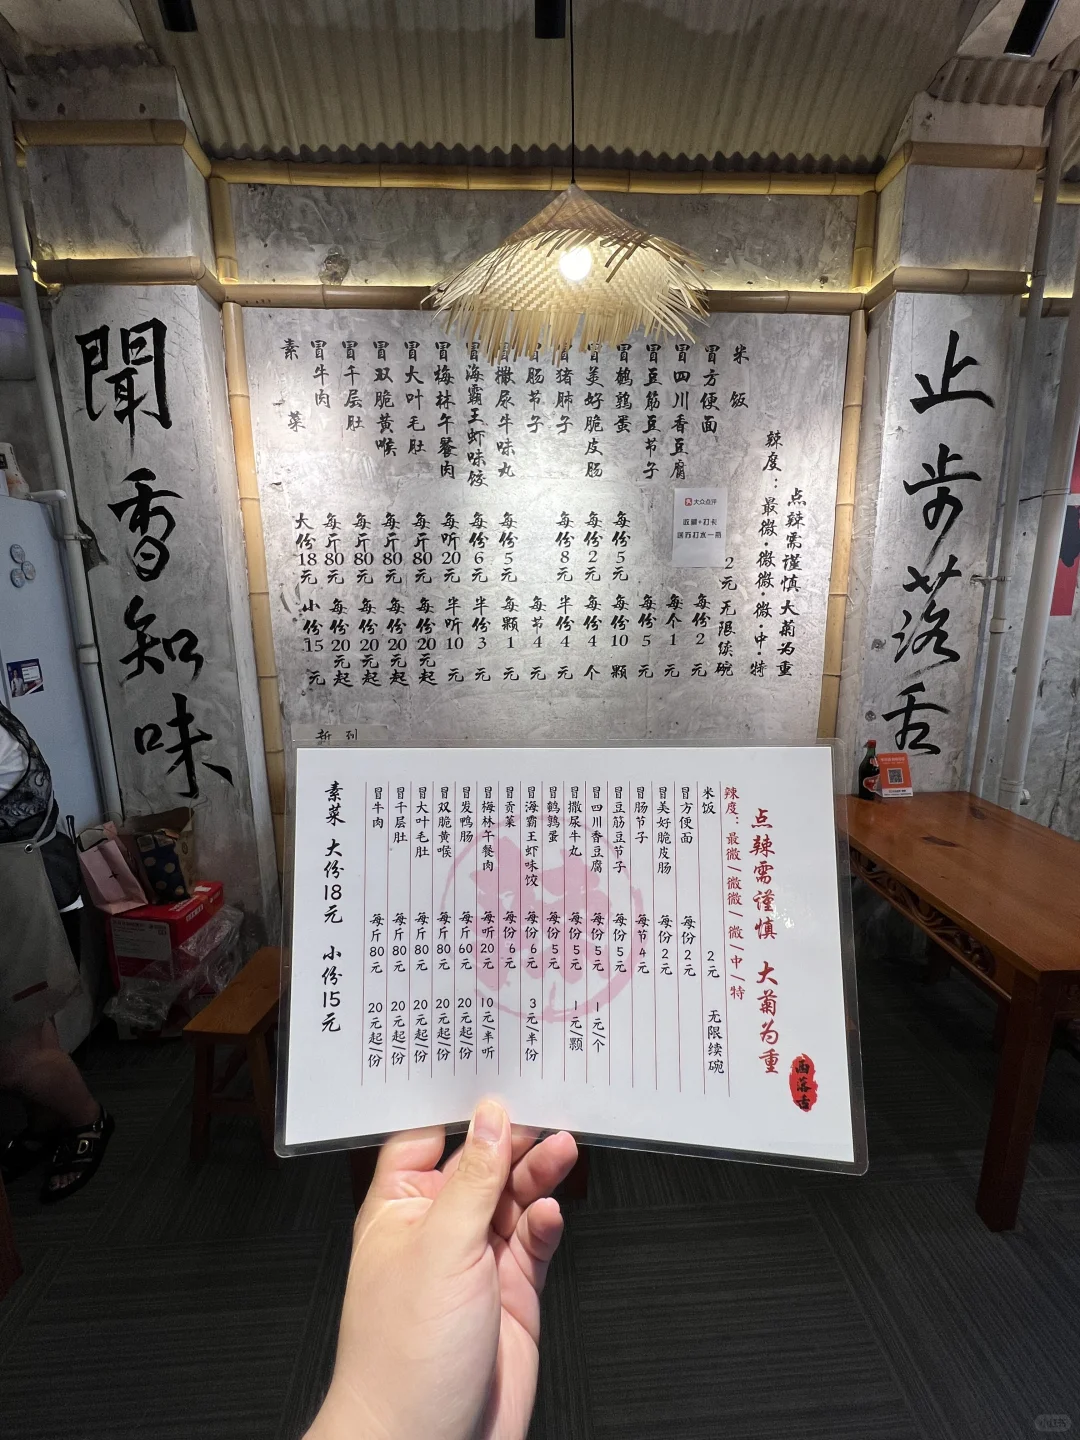 止步落舌
点辣需谨慎大菊为重
辣度：最微·微微·微·中·特
米饭 2元 无限续碗
冒方便面 每份2元
冒四川香豆腐 每个1元
冒豆筋豆节子 每份5元
冒鹌鹑蛋 每份5元 每份10颗
冒美好脆皮肠 每份2元 每份4个
冒猪肺子 每份8元 半份4元
冒肠节子 每节4元
冒撒尿牛味丸 每份5元 每颗1元
冒海霸王虾味饺 每份6元 半份3元
冒梅林午餐肉 每听20元 半听10元
冒大叶毛肚 每斤80元 每份20元起
冒双脆黄喉 每斤80元 每份20元起
冒千层肚 每斤80元 每份20元起
冒牛肉 每斤80元 每份20元起
素菜 大份18元 小份15元
聞香知味
大众点评
收藏+打卡
送苏打水一瓶
点辣需谨慎 大菊为重
西落舌
辣度：最微/微微/微/中/特
米饭 2元 无限续碗
冒方便面 每份2元
冒美好脆皮肠 每份2元
冒肠节子 每节4元
冒豆筋豆节子 每份5元
冒四川香豆腐 每份5元 1元/个
冒撒尿牛丸 每份5元 1元/颗
冒鹌鹑蛋 每份5元
冒海霸王虾味饺 每份6元 3元/半份
冒贡菜 每份6元
冒梅林午餐肉 每听20元 10元/半听
冒发鸭肠 每斤60元 20元起/份
冒双脆黄喉 每斤80元 20元起/份
冒大叶毛肚 每斤80元 20元起/份
冒千层肚 每斤80元 20元起/份
冒牛肉 每斤80元 20元起/份
素菜 大份18元 小份15元